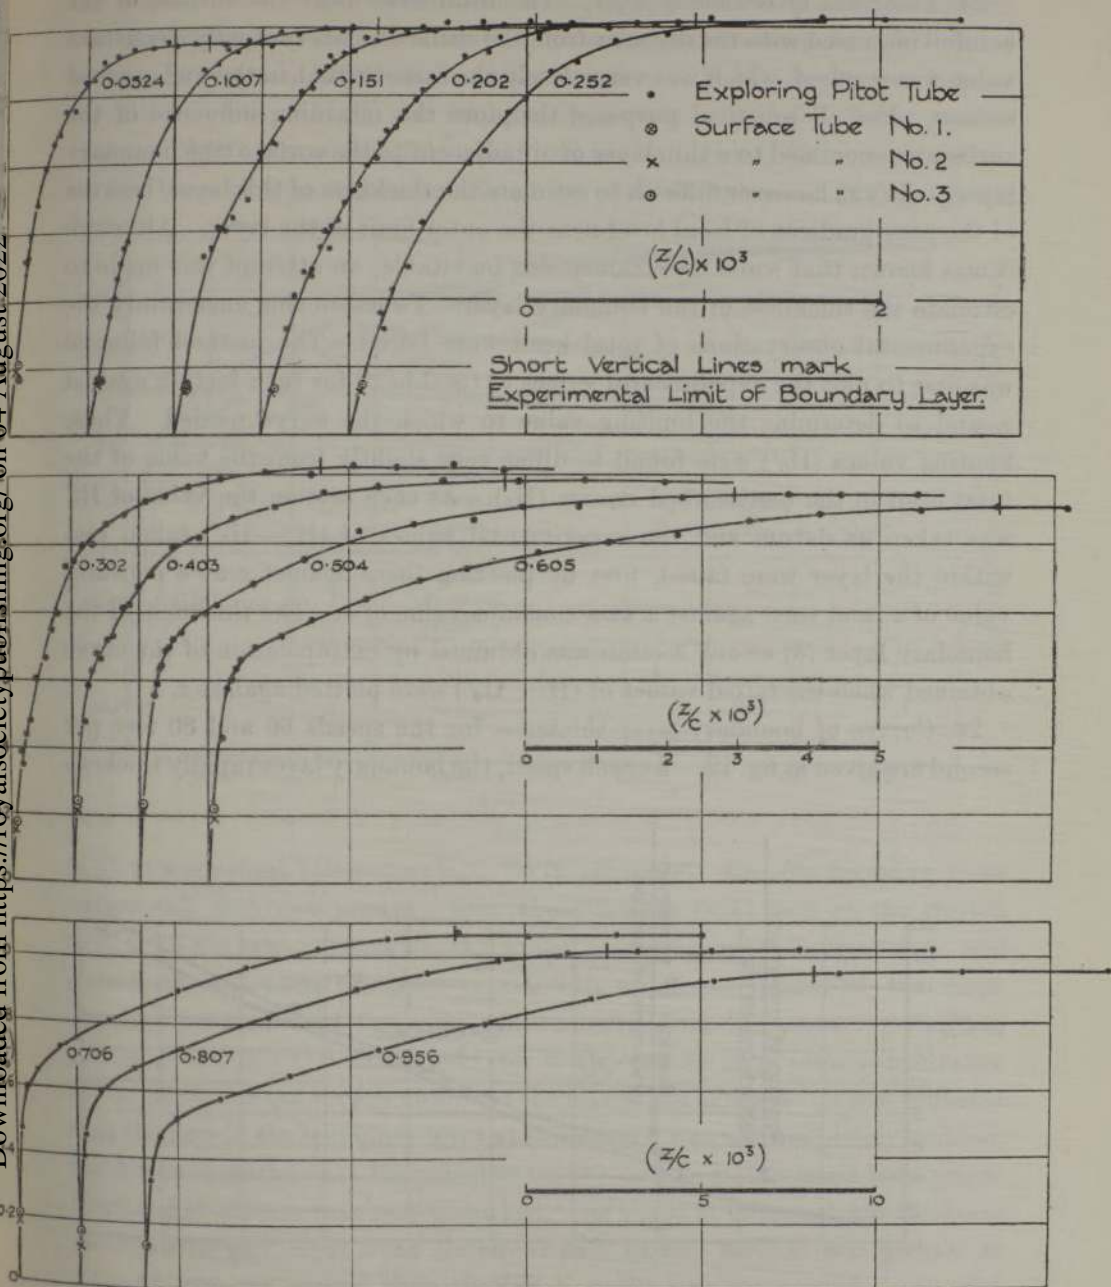 0.0524 0.1007 0.151 0.202 0.252
Exploring Pitot Tube
Surface Tube No. 1.
" " No. 2
" " No. 3
(z/c) x 10³
0 2
Short Vertical Lines mark
Experimental Limit of Boundary Layer.
0.302 0.403 0.504 0.605
(z/c x 10³)
0 1 2 3 4 5
0.706 0.807 0.956
(z/c x 10³)
0 5 10
0.2
0
Downloaded from https://royalsocietypublishing.org/ on 04 August 2022